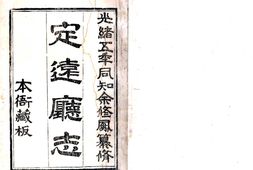 光緒五年同知余修鳳纂脩
定遠廳志
本衙藏板